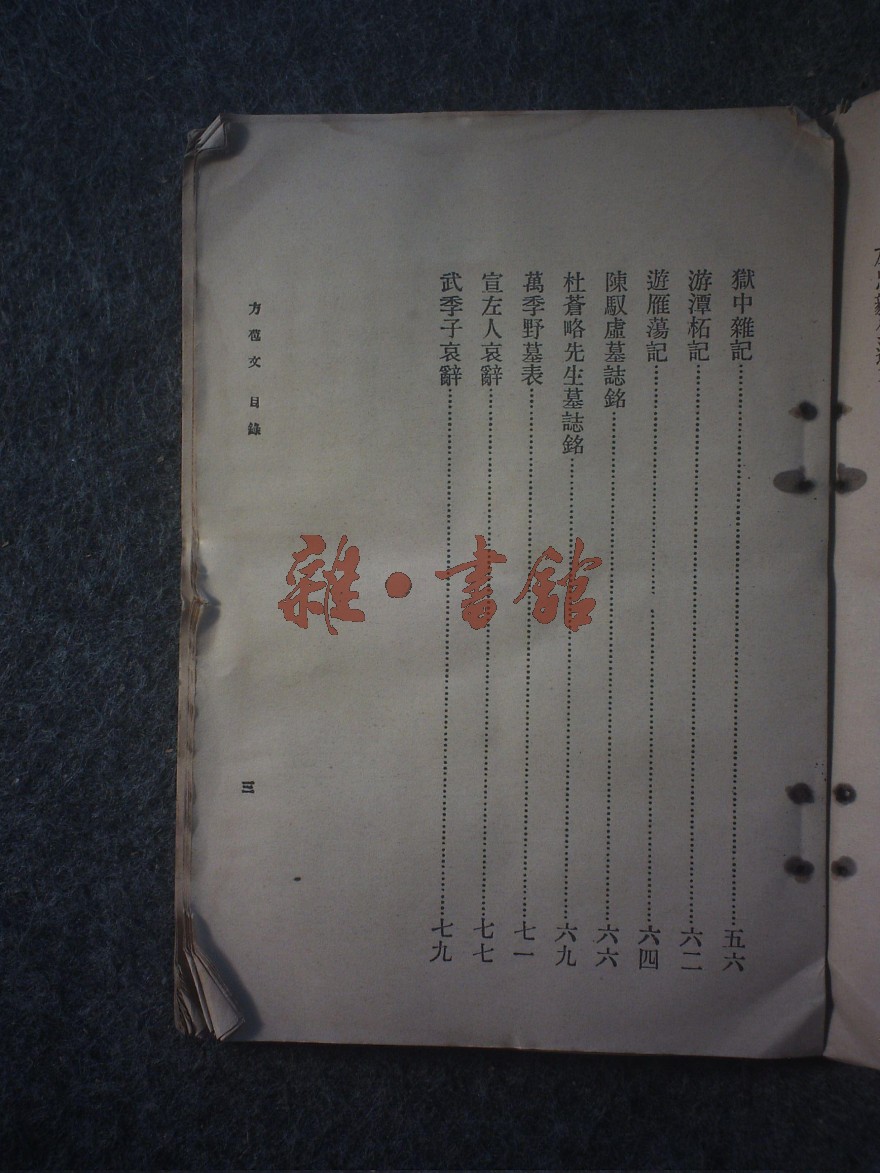 獄中雜記……五六
游潭柘記……六二
遊雁蕩記……六四
陳馭虛墓誌銘……六六
杜蒼略先生墓誌銘……六九
萬季野墓表……七一
宣左人哀辭……七七
武季子哀辭……七九
方苞文 目錄
三
雜·書館